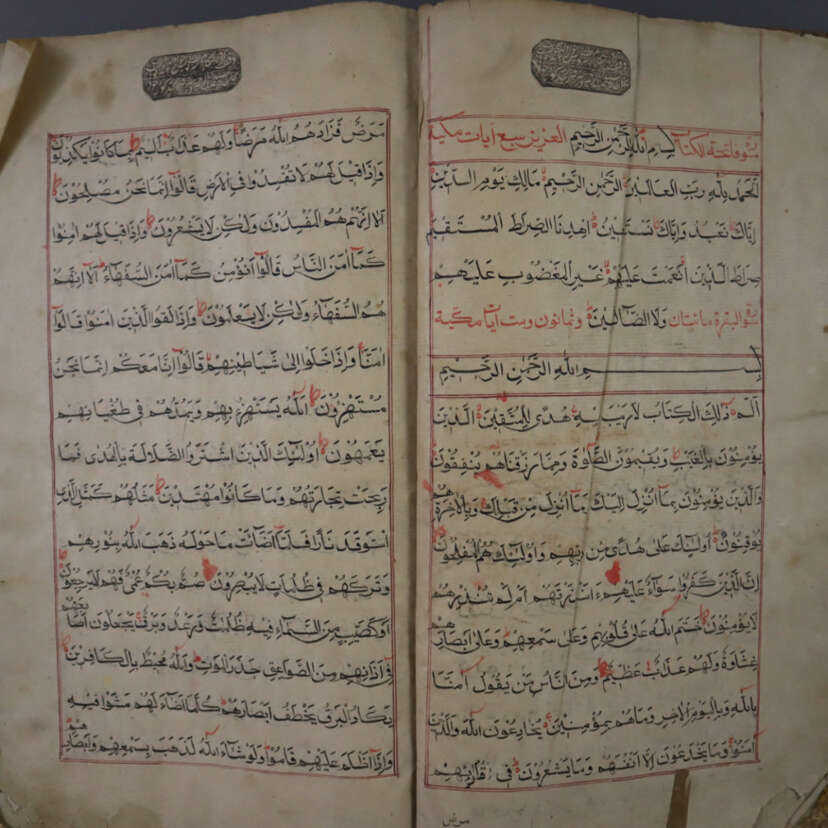 سورة فاتحة الكتاب بسم الله الرحمن الرحيم العزيز سبع ايات مكية
اَلْحَمْدُ لِلّٰهِ رَبِّ الْعَالَمِينَ الرَّحْمٰنِ الرَّحِيمِ مَالِكِ يَوْمِ الدِّينِ
اِيَّاكَ نَعْبُدُ وَاِيَّاكَ نَسْتَعِينُ اِهْدِنَا الصِّرَاطَ الْمُسْتَقِيمَ
صِرَاطَ الَّذِينَ اَنْعَمْتَ عَلَيْهِمْ غَيْرِ الْمَغْضُوبِ عَلَيْهِمْ
وَلَا الضَّالِّينَ سورة البقرة مائتان وثمانون وست آيات مكية
بِسْمِ اللهِ الرَّحْمٰنِ الرَّحِيمِ
الٓمٓ ذٰلِكَ الْكِتَابُ لَا رَيْبَ فِيهِ هُدًى لِلْمُتَّقِينَ الَّذِينَ
يُؤْمِنُونَ بِالْغَيْبِ وَيُقِيمُونَ الصَّلٰوةَ وَمِمَّا رَزَقْنَاهُمْ يُنْفِقُونَ
وَالَّذِينَ يُؤْمِنُونَ بِمَٓا اُنْزِلَ اِلَيْكَ وَمَٓا اُنْزِلَ مِنْ قَبْلِكَ وَبِالْاٰخِرَةِ هُمْ
يُوقِنُونَ اُولٰٓئِكَ عَلٰى هُدًى مِنْ رَبِّهِمْ وَاُولٰٓئِكَ هُمُ الْمُفْلِحُونَ
اِنَّ الَّذِينَ كَفَرُوا سَوَٓاءٌ عَلَيْهِمْ ءَاَنْذَرْتَهُمْ اَمْ لَمْ تُنْذِرْهُمْ
لَا يُؤْمِنُونَ خَتَمَ اللهُ عَلٰى قُلُوبِهِمْ وَعَلٰى سَمْعِهِمْ وَعَلٰى اَبْصَارِهِمْ
غِشَاوَةٌ وَلَهُمْ عَذَابٌ عَظِيمٌ وَمِنَ النَّاسِ مَنْ يَقُولُ اٰمَنَّا
بِاللهِ وَبِالْيَوْمِ الْاٰخِرِ وَمَا هُمْ بِمُؤْمِنِينَ يُخَادِعُونَ اللهَ وَالَّذِينَ
اٰمَنُوا وَمَا يَخْدَعُونَ اِلَّٓا اَنْفُسَهُمْ وَمَا يَشْعُرُونَ فِي قُلُوبِهِمْ
مرض
مَرَضٌ فَزَادَهُمُ اللهُ مَرَضًا وَلَهُمْ عَذَابٌ اَلِيمٌ بِمَا كَانُوا يَكْذِبُونَ
وَاِذَا قِيلَ لَهُمْ لَا تُفْسِدُوا فِي الْاَرْضِ قَالُٓوا اِنَّمَا نَحْنُ مُصْلِحُونَ
اَلَٓا اِنَّهُمْ هُمُ الْمُفْسِدُونَ وَلٰكِنْ لَا يَشْعُرُونَ وَاِذَا قِيلَ لَهُمْ اٰمِنُوا
كَمَٓا اٰمَنَ النَّاسُ قَالُٓوا اَنُؤْمِنُ كَمَٓا اٰمَنَ السُّفَهَٓاءُ اَلَٓا اِنَّهُمْ
هُمُ السُّفَهَٓاءُ وَلٰكِنْ لَا يَعْلَمُونَ وَاِذَا لَقُوا الَّذِينَ اٰمَنُوا قَالُٓوا
اٰمَنَّا وَاِذَا خَلَوْا اِلٰى شَيَاطِينِهِمْ قَالُٓوا اِنَّا مَعَكُمْ اِنَّمَا نَحْنُ
مُسْتَهْزِؤُنَ اَللهُ يَسْتَهْزِئُ بِهِمْ وَيَمُدُّهُمْ فِي طُغْيَانِهِمْ
يَعْمَهُونَ اُولٰٓئِكَ الَّذِينَ اشْتَرَوُا الضَّلَالَةَ بِالْهُدٰى فَمَا
رَبِحَتْ تِجَارَتُهُمْ وَمَا كَانُوا مُهْتَدِينَ مَثَلُهُمْ كَمَثَلِ الَّذِي
اسْتَوْقَدَ نَارًا فَلَمَّٓا اَضَٓاءَتْ مَا حَوْلَهُ ذَهَبَ اللهُ بِنُورِهِمْ
وَتَرَكَهُمْ فِي ظُلُمَاتٍ لَا يُبْصِرُونَ صُمٌّ بُكْمٌ عُمْيٌ فَهُمْ لَا يَرْجِعُونَ
اَوْ كَصَيِّبٍ مِنَ السَّمَٓاءِ فِيهِ ظُلُمَاتٌ وَرَعْدٌ وَبَرْقٌ يَجْعَلُونَ اَصَابِعَهُمْ
فِٓي اٰذَانِهِمْ مِنَ الصَّوَاعِقِ حَذَرَ الْمَوْتِ وَاللهُ مُحِيطٌ بِالْكَافِرِينَ
يَكَادُ الْبَرْقُ يَخْطَفُ اَبْصَارَهُمْ كُلَّمَٓا اَضَٓاءَ لَهُمْ مَشَوْا فِيهِ
وَاِذَٓا اَظْلَمَ عَلَيْهِمْ قَامُوا وَلَوْ شَٓاءَ اللهُ لَذَهَبَ بِسَمْعِهِمْ وَاَبْصَارِهِمْ